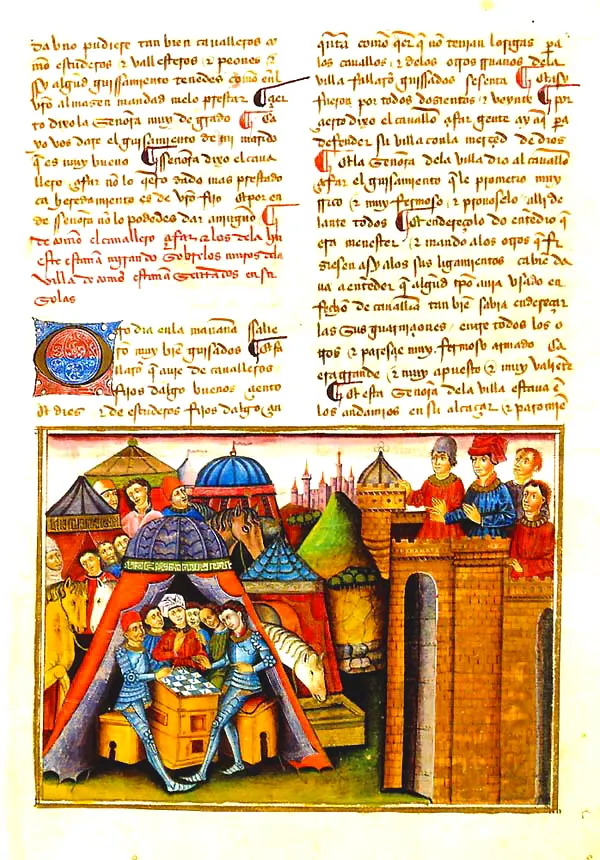 da vno pudiese tan bien caualleros co
mo escuderos & vallesteros & peones &
sy algud guisamiento tenedes como en l
vro almazen mandad melo prestar ¶ çier
to dixo la señora muy de grado ¶ Ca
yo vos dare el guisamiento de mi marido
q es muy bueno ¶ Señora dixo el caua
llero zifar no lo qero dado mas prestado
ca heredamiento es de vro fijo & por en
de señora no lo podedes dar a niguno ¶
de como el cauallero zifar & los dela hu
este estaua mirando sobre los muros dela
villa de como estaua sentados en su
solas
Otro dia enla mañana salie
ro muy bie guisados ¶ & fa
llaro q auie de caualleros
fijos dalgo buenos çiento
& dies & de escuderos fijos dalgo
como qer q no tenian lorigas pa
los cauallos & delos otros dela
villa fallaro guisados sesenta ¶
fueron por todos dosientos & veynte ¶ por
çierto dixo el cauallo zifar gente ay aq pa
defender su villa conla merçed de dios
¶ & la señora dela villa dio al cauallo
zifar el guisamiento q le prometio muy
rrico & muy fermoso & prouoselo alli de
lante todos ¶ & endereçolo do entedio q
era menester & mando alos otros q fi
ziesen asy alos sus guarnimientos & bie da
ua a enteder q algud tpo auia vsado en
fecho de caualleria tan bie sabia endereçar
las sus guarniçiones entre todos los o
tros & paresçie muy fermoso armado ca
era grande & muy apuesto & muy valiete
¶ & esta señora dela villa estaua e
los andamios en su alcaçar & paromie